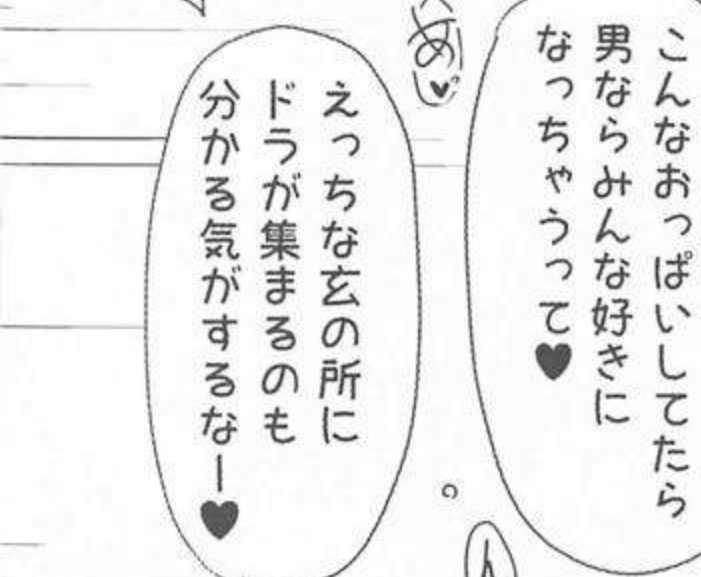 こんなおっぱいしてたら
男ならみんな好きに
なっちゃうって♥
えっちな玄の所に
ドラが集まるのも
分かる気がするなー♥